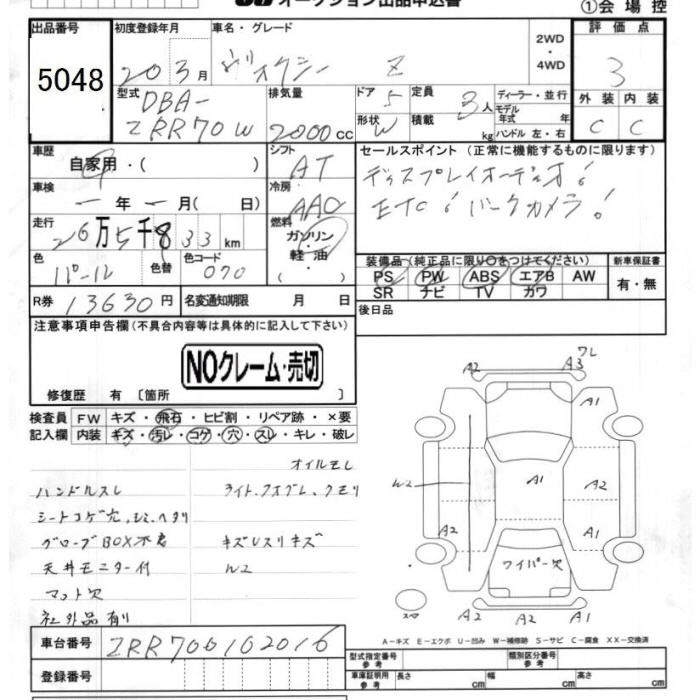 オークション出品申込書
①会場控
出品番号
5048
初度登録年月
20 3月
車名・グレード
ヴォクシー Z
2WD
・
4WD
評価点
3
型式
DBA-
ZRR70W
排気量
2000 cc
ドア 5
形状 W
定員 8人
積載 kg
ディーラー・並行
モデル
年式 年
ハンドル 左・右
外装 内装
C C
車歴
自家用・( )
シフト
AT
車検
一年一月( 日)
冷房
AAC
走行
26万5千833km
燃料
ガソリン・
軽油・
色
パール
色替
色コード
070
R券 13630円
名変通知期限 月 日
セールスポイント(正常に機能するものに限ります)
ディスプレイオーディオ!
ETC! バックカメラ!
装備品(純正品に限り○をつけてください)
新車保証書
PS PW ABS エアB AW
SR ナビ TV カワ
有・無
後日品
注意事項申告欄(不具合内容等は具体的に記入して下さい)
NOクレーム・売切
修復歴 有 [箇所 ]
検査員 FW キズ・飛石・ヒビ割・リペア跡・×要
記入欄 内装 キズ・汚レ・コゲ・穴・スレ・キレ・破レ
オイルモレ
ハンドルスレ
ライト、フォグレ、クモリ
シートコゲ穴、シミ、ヘタリ
グローブBOX不良
キズレスリキズ
天井モニター付
W2
マット欠
社外品有り
車台番号 ZRR70-0102016
登録番号
A2 A3 ワレ
A1
W2 A1 A2
A2 A1
ワイパー欠
スペア
A2 A2 A1
A-キズ E-エクボ U-凹み W-補修跡 S-サビ C-腐食 XX-交換済
型式指定番号
参考
類別区分番号
参考
車庫証明用
参考
長さ cm
幅 cm
高さ cm